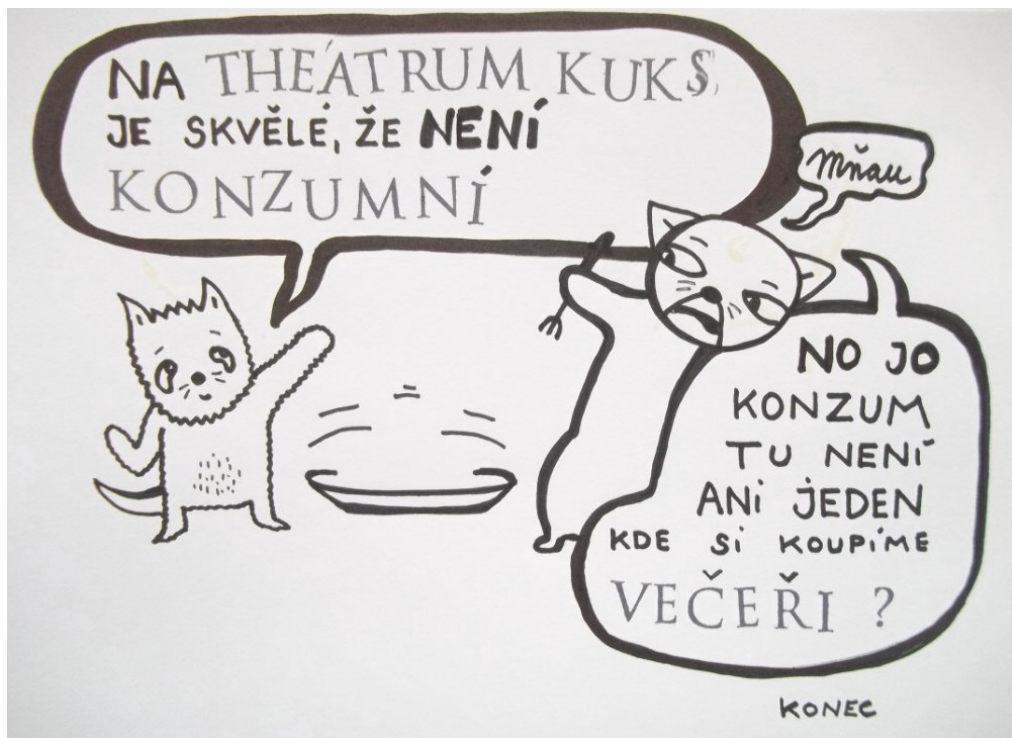 NA THEÁTRUM KUKS
JE SKVĚLÉ, ŽE NENÍ
KONZUMNÍ
Mňau
NO JO
KONZUM
TU NENÍ
ANI JEDEN
KDE SI KOUPÍME
VEČEŘI ?
KONEC